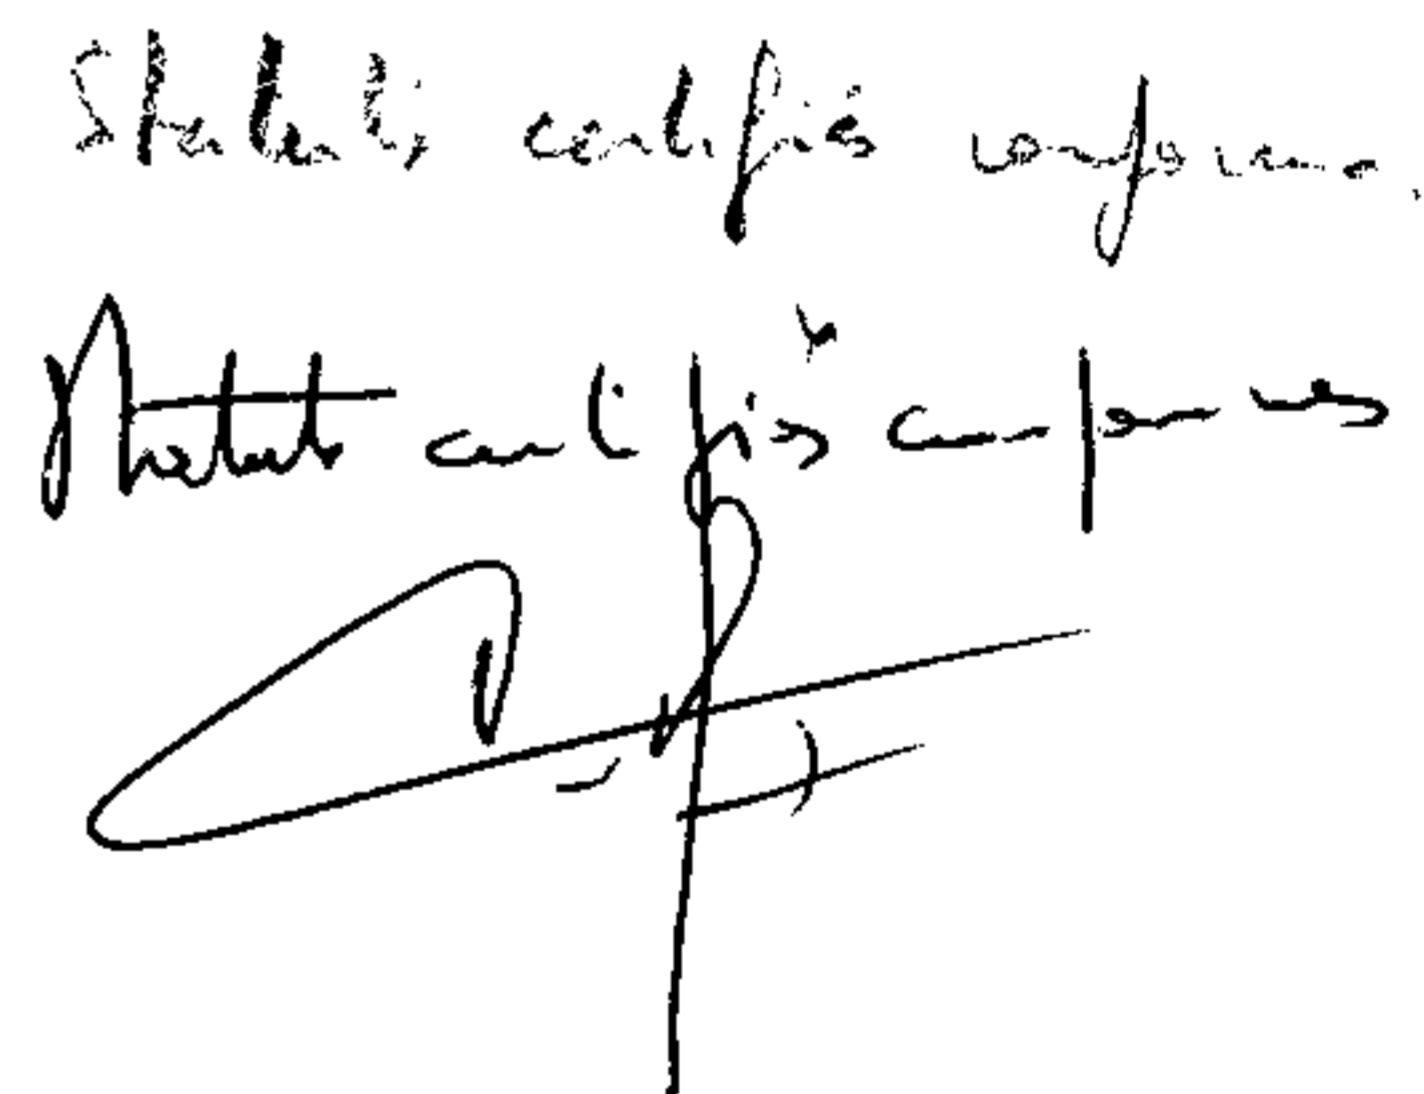 Statuts certifiés conformes.
Statuts certifiés conformes